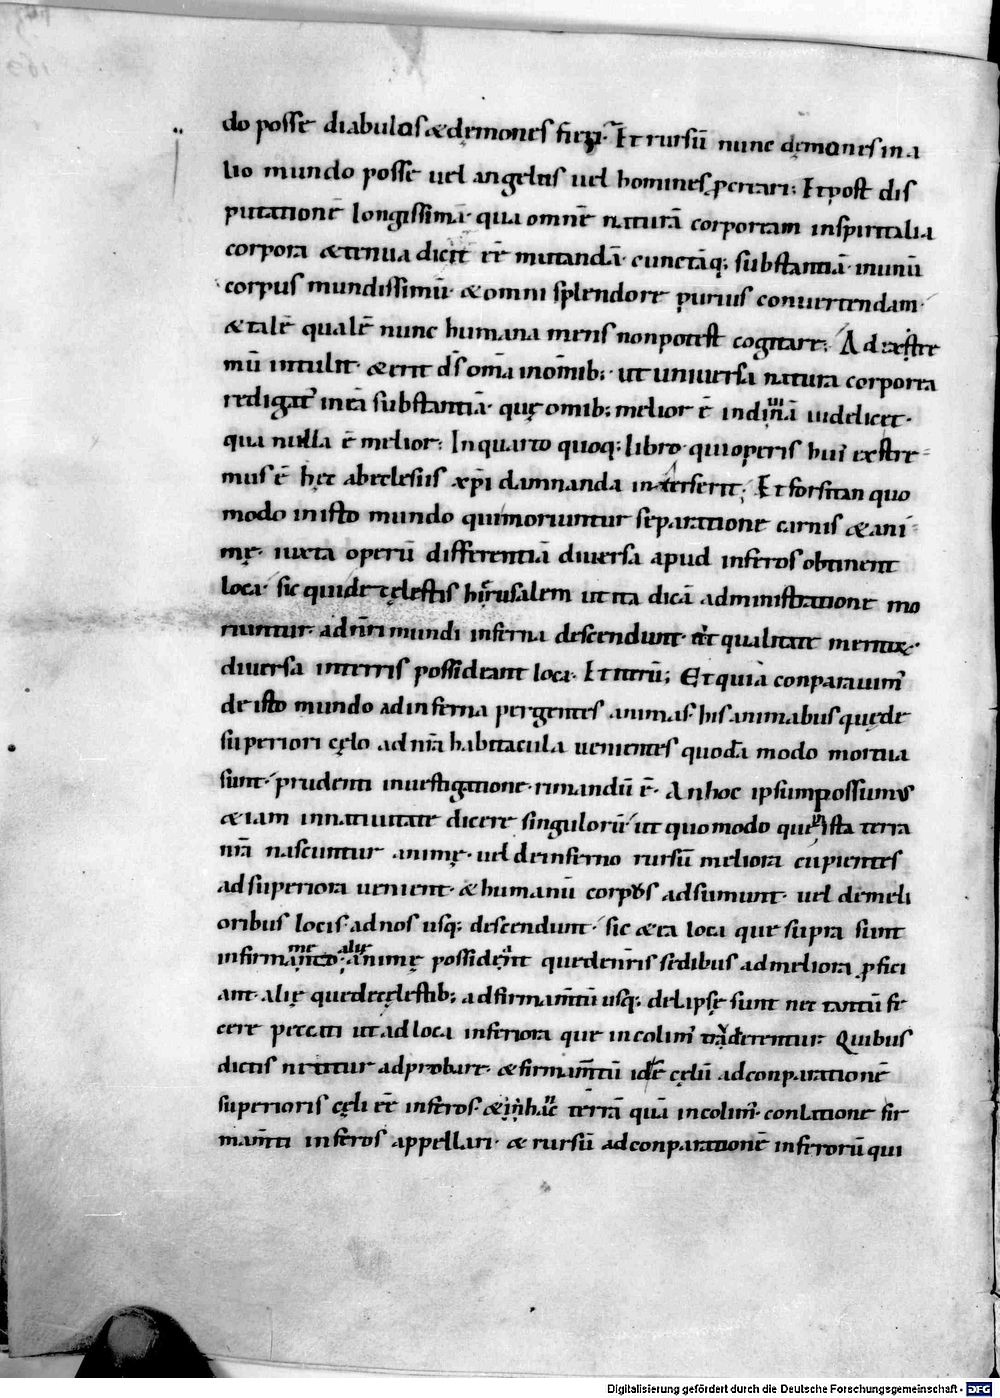 do posse diabulos & dęmones fieri. Et rursū nunc dęmones in a
lio mundo posse uel angelus uel homines ꝓcreari; Et post dis
putationē longissimā· qua omnē naturā corpoream inspiritalia
corpora & tenua dicit eē mutandā· cunctāq; substantiā· inunū
corpus mundissimū· & omni splendore purius conuertendam·
& talē qualē nunc humana mens nonpotest cogitare; Ad extre
mū intulit· & erit d̄s om̄a inom̄ib; ut uniuersa natura corporea
redigat᷑ ineā substantiā· quę omib; melior ē indiuinā uidelicet·
qua nulla ē melior; In quarto quoq; libro· qui operis hui᷑ extre
mus ē hęc abeclesiis xp̄i damnanda interserit; Et forsitan quo
modo inisto mundo quimoriuntur separatione carnis & ani
mę· iuxta operū differentiā diuersa apud inferos obtinent
loca· sic quide cęlestis hierusalem ut ita dicā administratione mo
riuntur· ad nr̄i mundi inferna descendunt· ut qualitate meritor
diuersa interris possideant loca· Et iterū; Et quia conparauim᷑
de isto mundo adinferna pergentes animas· his animabus quęde
superiori cęlo ad nr̄a habitacula uenientes quodā modo mortua
sunt· prudenti inuestigatione· rimandū ē· An hoc ipsum possumus
& iam innatiuitate dicere singulorū ut quomodo que in ista terra
nr̄a nascuntur animę· uel deinferno rursū meliora cupientes
ad superiora uenient· & humanū corpus adsumunt· uel demeli
oribus locis adnos usq; descendunt· sic & ea loca que supra sunt
infirmamento· alię animę possideant quedenr̄is sedibus admeliora ꝓfici
ant· alię quedecęlestib; adfirmam̄tū usq; delapsę sunt nec tantū fe
cere peccati ut ad loca inferiora que incolim᷑ traderentur· Quibus
dictis nititur adprobare· & firmam̄tū idē cęlū adconparationē
superioris cęli eē inferos· & in hac terrā quā incolim᷑· conlatione fir
mam̄ti inferos appellari· & rursū adconparationē inferorū qui
Digitalisierung gefördert durch die Deutsche Forschungsgemeinschaft - DFG